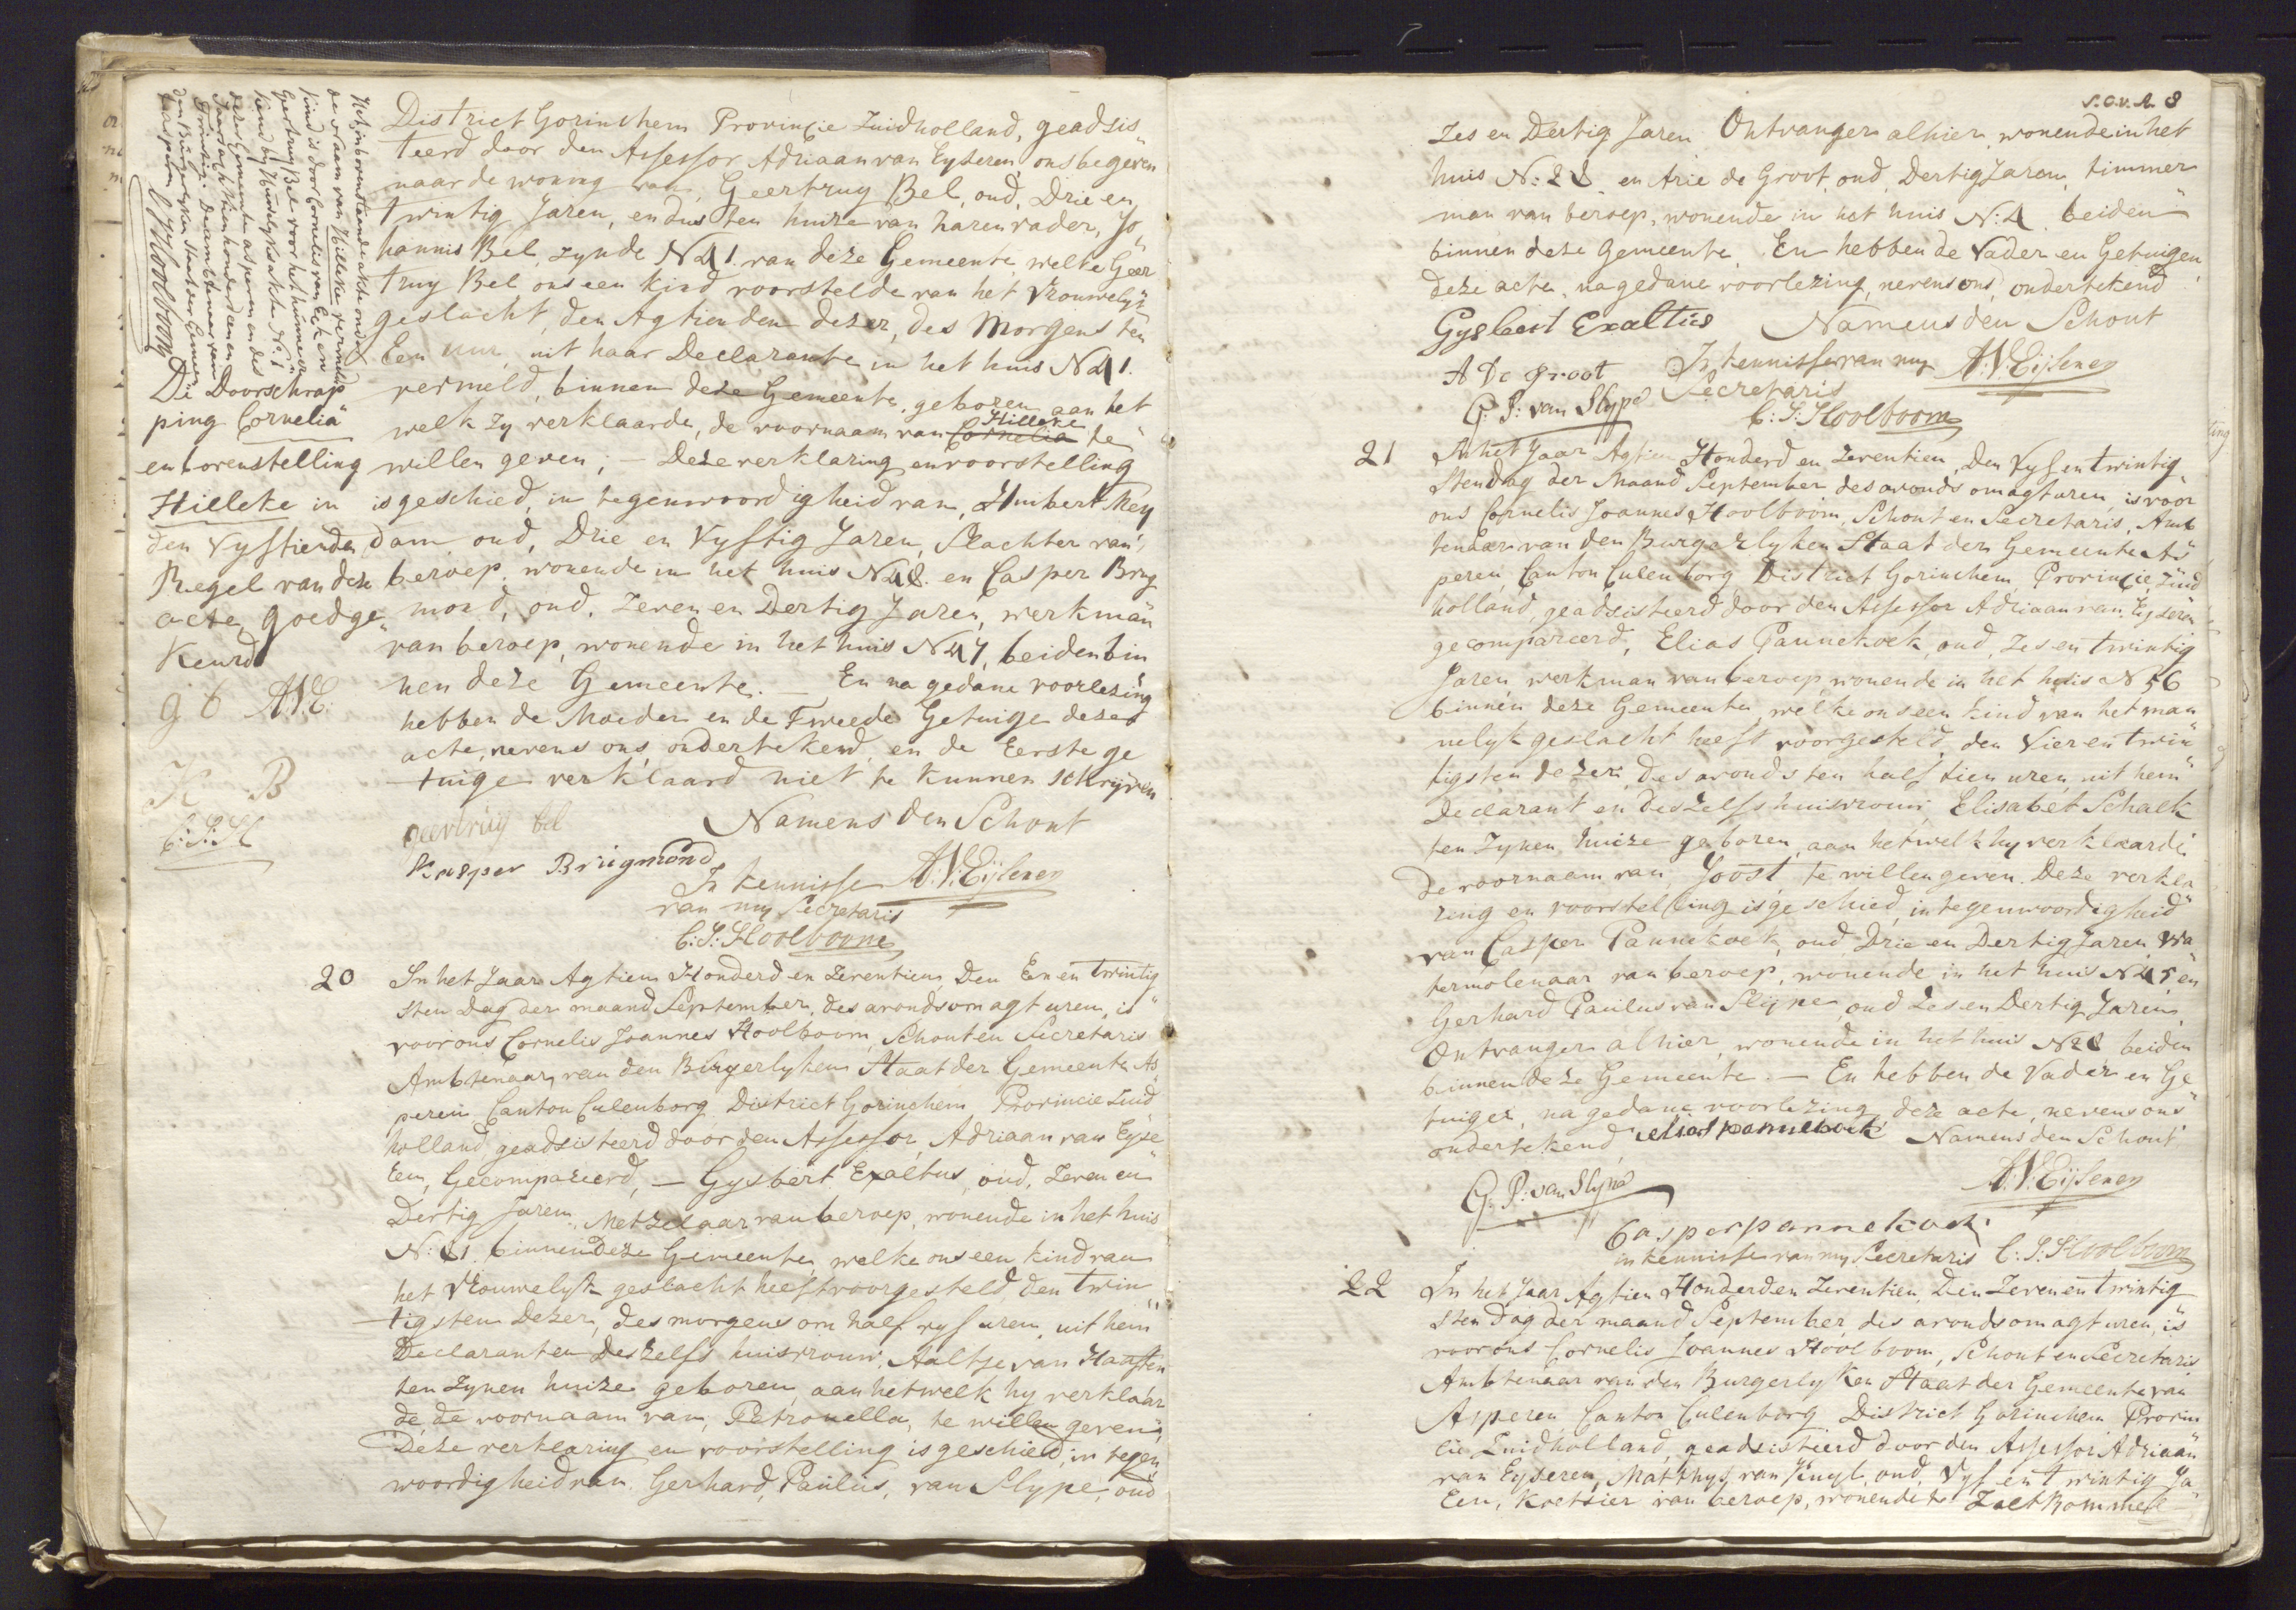 District Gorinchem Provincie Zuidholland, geadsis„
teerd door den Assessor Adriaan van Eyseren ons begeven
naar de woning van Geertruy Bel, oud, Drie en
twintig Jaren, en dus ten huize van haren vader, Jo
hannis Bel, zynde N 41. van deze Gemeente, welke Geer
truy Bel ons een kind voorstelde van het Vrouwelyk
geslacht, den Agtienden dezer, des Morgens ten
Een uur, uit haar Declarante in het huis N 41.
vermeld, binnen deze Gemeente, geboren aan het
Hilleke
welk zy verklaarde, de voornaam van Cornelia te
willen geven; — Deze verklaring en voorstelling
is geschied, in tegenwoordigheid van, Humbert Mey
dam oud, Drie en Vyftig Jaren, Slachter van
beroep, wonende in het huis N 48. en Casper Brug
mond, oud, Zeven en Dertig Jaren, werkman
van beroep, wonende in het huis N 47, beiden bin
nen deze Gemeente. — En na gedane voorlezing
hebben de Moeder en de Tweede Getuige deze
acte, nevens ons, ondertekend, en de Eerste ge
tuige verklaard niet te kunnen schryven
geertruy bel
Namens den Schout
Kasper Brugmond
In kennisse A.V. Eijseren
van my Secretaris
C: J: Hoolboom
Het in bovenstaande akte onder
de naam van Hilleke vermelde
kind is door Cornelis van Eeken
Geertruy Bel voor het hunne er
kend by Huwelyks akte N: 1
dezer Gemeente asperen en des
Jaars achttien honderd en en
twintig. De ambtenaar van
den Burgerlyken Staat der Gemeente
asperen
C J Hoolboom
De Doorschrap
ping Cornelia
en bovenstelling
Hilleke in
den Vyftienden
Regel van deze
acte, goedge
keurd
g b A.V.E.
K B
C: J: H
20 In het Jaar Agtien Honderd en Zeventien, Den Een en twintig
sten Dag der maand September, des avonds om agt uren, is
voor ons Cornelis Joannes Hoolboom, Schout en Secretaris
Ambtenaar van den Burgerlyken Staat der Gemeente As
peren Canton Culenborg District Gorinchem Provincie Zuid
holland, geadsisteerd door den Assessor, Adriaan van Eyse
ren, Gecompareerd, — Gysbert Exaltus, oud, Zeven en
Dertig Jaren, Metzelaar van beroep, wonende in het huis
N: 81. binnen deze Gemeente, welke ons een kind van
het Vrouwelyk geslacht heeft voorgesteld, den twin
tigsten dezer, des morgens om half vyf uren, uit hem
Declarant en deszelfs huisvrouw, Aaltje van Haaften
ten zynen huize geboren, aan het welk hy verklaar
de, de voornaam van, Petronella, te willen geven,
Deze verklaring en voorstelling is geschied, in tegen
woordigheid van Gerhard, Paulus, van Slype, oud
8
Zes en Dertig Jaren Ontvanger alhier, wonende in het
huis N: 28. en Arie de Groot, oud, Dertig Jaren, timmer
man van beroep, wonende in het huis N: 4. beiden
binnen deze gemeente. En hebben de Vader en Getuigen
deze acte, na gedane voorlezing, nevens ons, ondertekend
Gysbert Exaltus Namens den Schout
A De groot In kennisse van my A.V. Eijseren
G: P: van Slype Secretaris
C: J: Hoolboom
21 In het Jaar Agtien Honderd en Zeventien, Den Vyf en twintig
sten Dag der Maand September des avonds om agt uren, is voor
ons Cornelis Joannes Hoolboom, Schout en Secretaris, Amb
tenaar van den Burgerlyken Staat der Gemeente As
peren, Canton Culenborg District Gorinchem, Provincie, Zuid
holland, geadsisteerd door den Assessor Adriaan van Eyseren
gecompareerd, Elias Pannekoek, oud, Zes en twintig
Jaren, werkman van beroep wonende in het huis N 56
binnen deze Gemeente, welke ons een kind van het man
nelyk geslacht heeft voorgesteld, den Vier en twin
tigsten dezer, des avonds ten half tien uren, uit hem
Declarant en deszelfs huisvrouw, Elisabet Schalk
ten zynen huize geboren, aan het welk hy verklaarde
de voornaam van, Joost, te willen geven. Deze verkla
ring en voorstelling is geschied, in tegenwoordigheid
van Casper Pannekoek, oud Drie en Dertig Jaren, Wa
termolenaar van beroep, wonende in het huis N 45, en
Gerhard Paulus van Slype, oud Zes en Dertig Jaren,
Ontvanger alhier, wonende in het huis N 28, beiden
binnen deze Gemeente. — En hebben de Vader en Ge
tuigen, na gedane voorlezing deze acte, nevens ons
ondertekend, elias pannekoek Namens den Schout
G. P: van Slype A.V. Eijseren
Casper pannekoek
in kennisse van my Secretaris C: J: Hoolboom
22 In het Jaar Agtien Honderd en Zeventien, Den Zeven en twintig
sten Dag der maand September, des avonds om agt uren, is
voor ons Cornelis Joannes Hoolboom, Schout en Secretaris
Ambtenaar van den Burgerlyken Staat der Gemeente van
Asperen Canton Culenborg District Gorinchem Provin
cie Zuidholland, geadsisteerd door den Assessor Adriaan
van Eyseren, Matthys van Kuyl, oud, Vyf en twintig Ja
ren, Koetsier van beroep, wonende te Zaltbommel